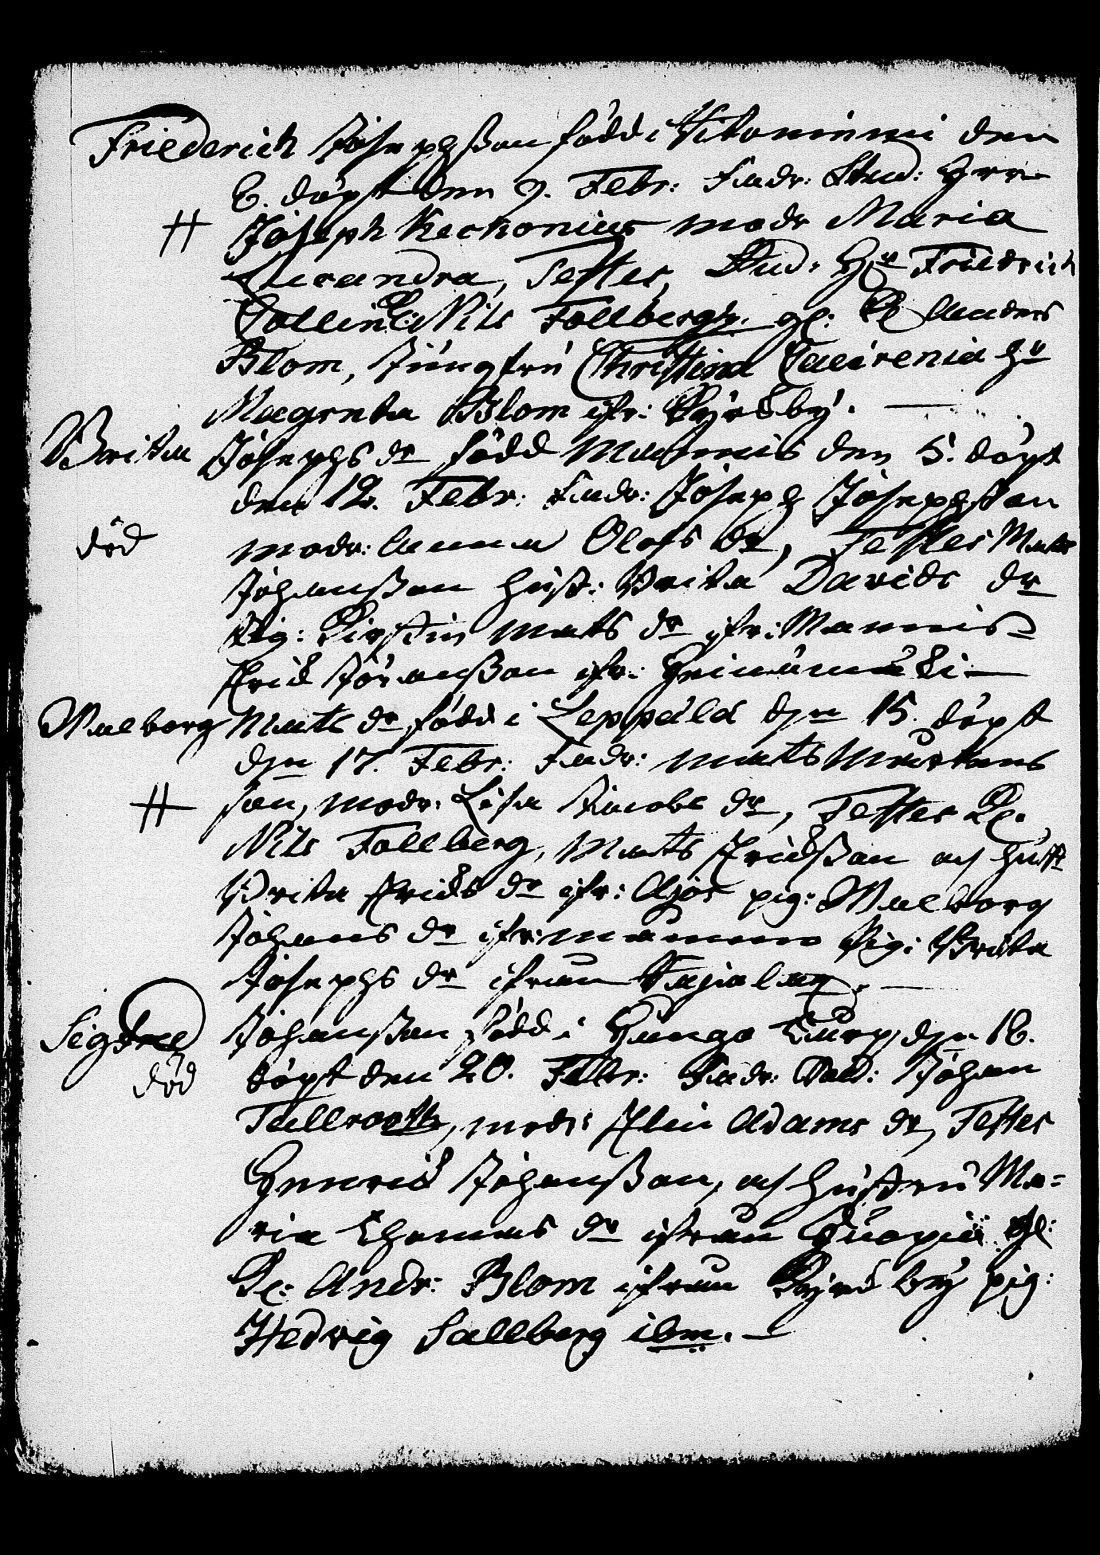 Friederich Josephsson född i Vitoniemi den
6. döpt den 9. Febr: fadr: Stud: Herr
Joseph Keckonius modr Maria
Alexandra, Testes, Stud: Hr Friedrich
Nils Follberg, gl: Anders
Blom, Jungfru Christina Hu
Magreta Blom ifr: Kyrkby.
Britta Josephs dr född Mannis den 5. döpt
den 12. Febr: fadr: Joseph Josephsson
död modr: Anna Olofs dr, Testes Mats
Johansson hust: Brita Davids dr
Pig: Kirstin Mats dr ifr: Mannis
Erik Johansson ifr:
Walborg Mats dr född i Leppälä den 15. döpt
den 17. Febr: fadr: Mats Martens
son, modr: Lisa Jacobs dr, Testes
Nils Follberg, Mats Eriksson och hust
Brita Eriks dr ifr: pig: Walborg
Johans dr ifr: Pig: Brita
Josephs dr ifrån Kajalax.
Sigfred Johansson född i Kurp, den 16.
död döpt den 20. Febr: fadr: Johan
Tallrooth, modr: Elin Adams dr, Testes
Henrik Johansson, och hustru Ma=
ria Thomas dr ifrån
Andr: Blom ifrån Kyrkby pig:
Hedvig Sallberg ibm.